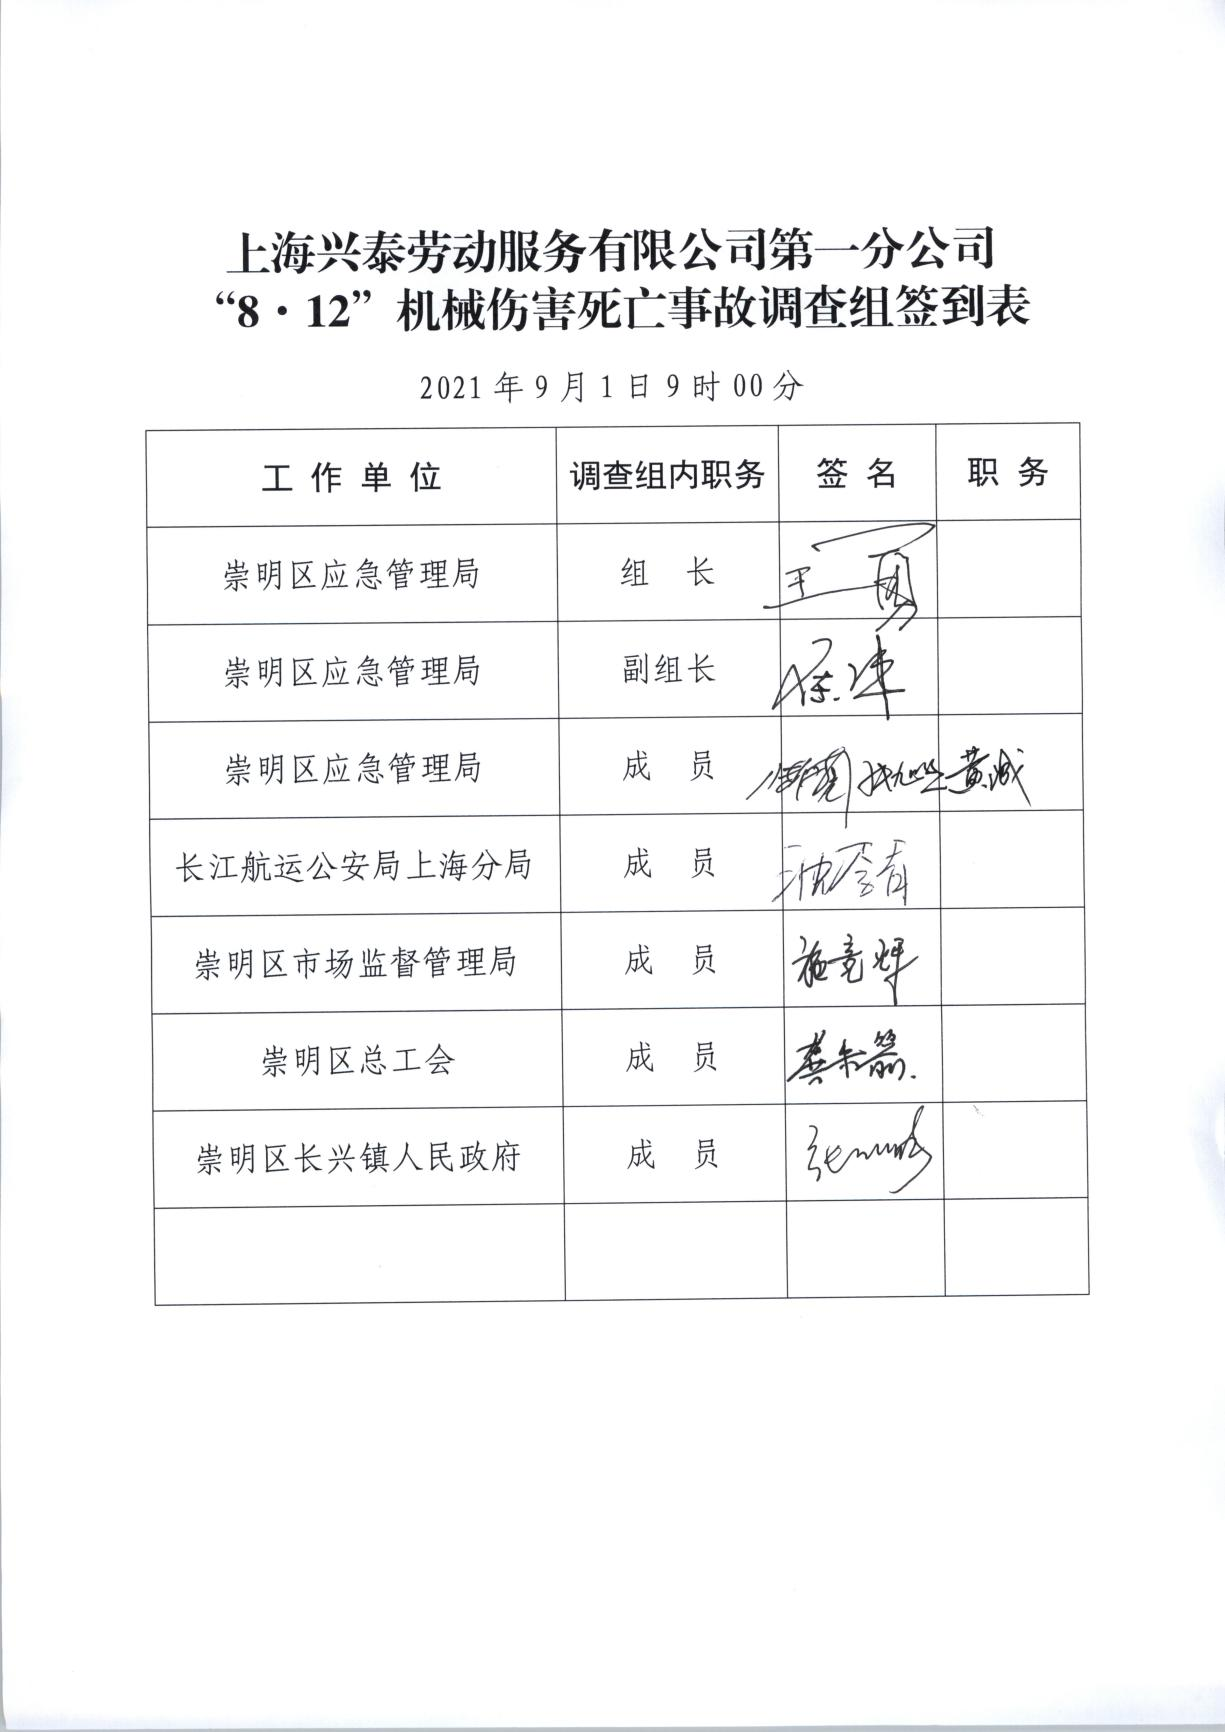 上海兴泰劳动服务有限公司第一分公司
“8·12”机械伤害死亡事故调查组签到表
2021年9月1日9时00分
工作单位 调查组内职务 签名 职务
崇明区应急管理局 组 长 王勇
崇明区应急管理局 副组长
崇明区应急管理局 成 员 黄诚
长江航运公安局上海分局 成 员
崇明区市场监督管理局 成 员 施竞辉
崇明区总工会 成 员
崇明区长兴镇人民政府 成 员